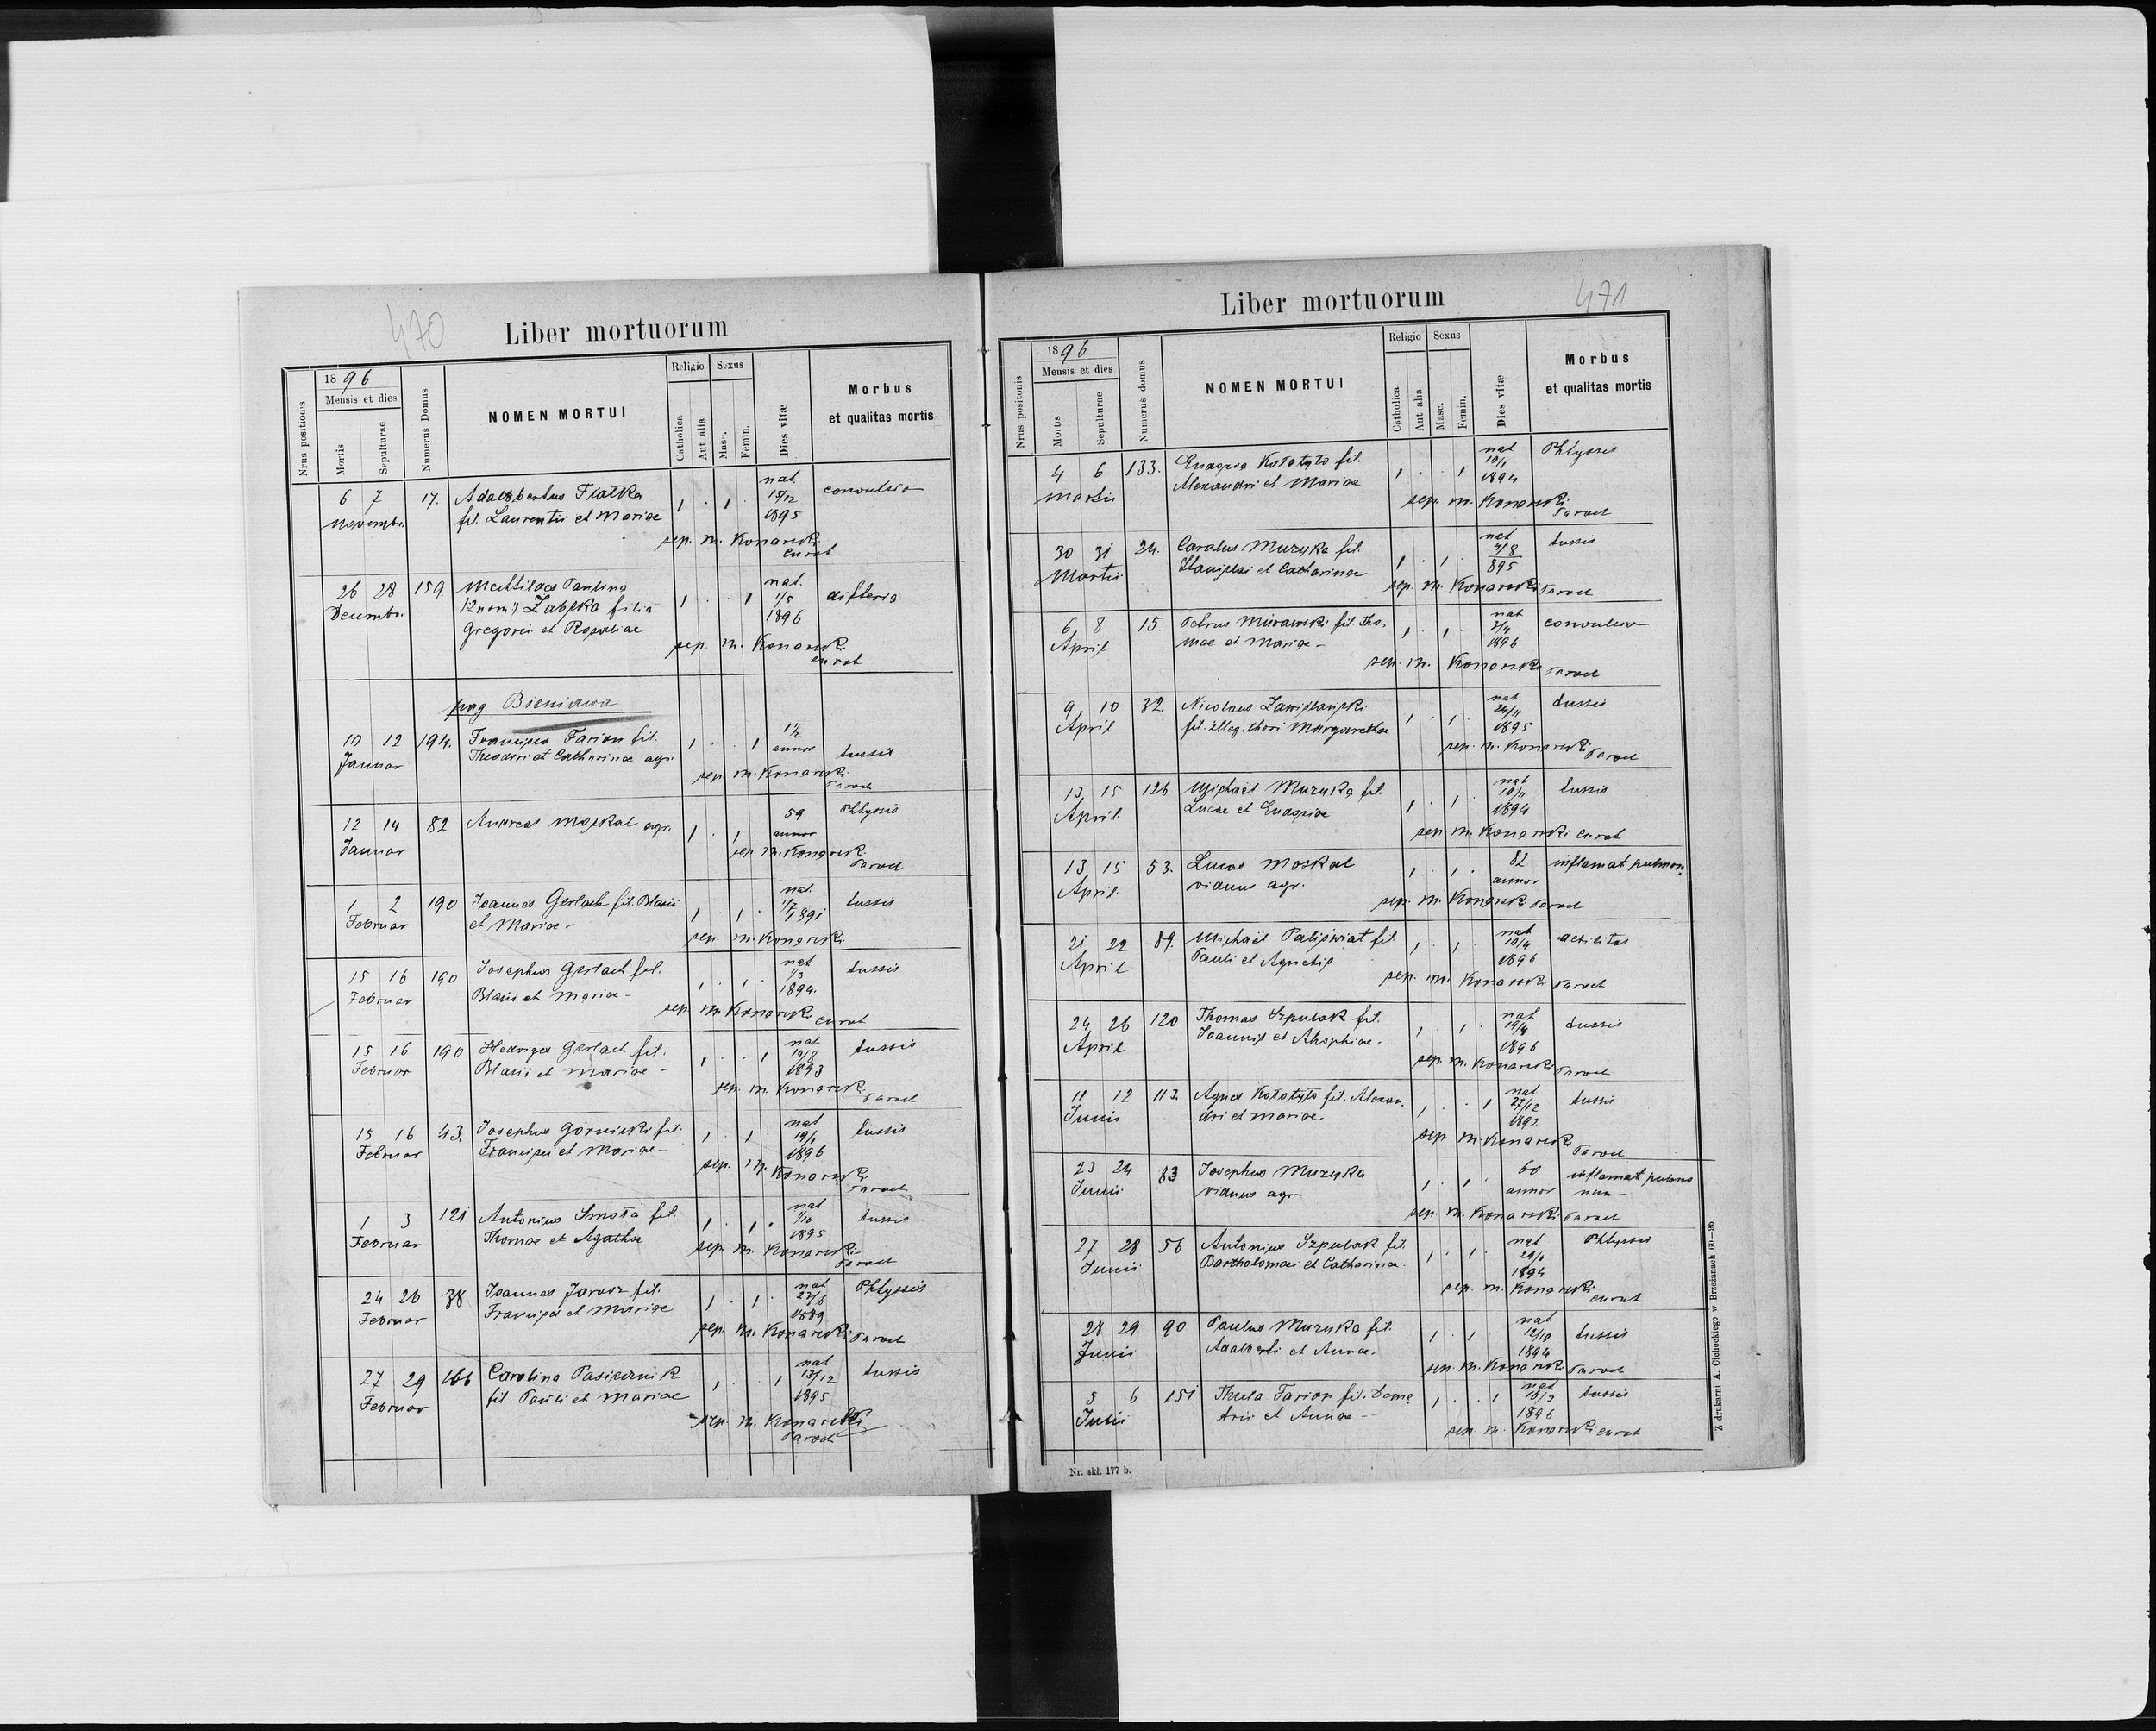 470
Liber mortuorum
Nrus positionis
1896
Mensis et dies
Mortis
Sepulturae
Numerus Domus
NOMEN MORTUI
Religio
Catholica
Aut alia
Sexus
Masc.
Femin.
Dies vitæ
Morbus
et qualitas mortis
6 7 17. Adalbertus Fiatka 1 . 1 . nat. 15/12 1895 convulsio
Novembr. fil. Laurentii et Mariae
sep. M. Konarski
curat
26 28 159 Paulina 1 . . 1 nat. 1/5 1896 difteria
Decembr. Zabska filia
Gregorii et Rosaliae
sep. M. Konarski
curat
pag. Bieniawa
10 12 194. Francisca Farion fil. 1 . . 1 1 1/2 annor tussis
Januar Theodori et Catharinae agr.
sep. M. Konarski
Paroch
12 14 82 Andreas Moskal agr. 1 . 1 . 59 annor Phtyssis
Januar
sep. M. Konarski
Paroch
1 2 190 Joannes Gerlach fil. Blasii 1 . 1 . nat. 1/7 1891 tussis
Februar et Mariae -
sep. M. Konarski
15 16 190 Josephus Gerlach fil. 1 . 1 . nat 1/3 1894. tussis
Februar Blasii et Mariae -
sep. M. Konarski curat
15 16 190 Hedviga Gerlach fil. 1 . . 1 nat 10/8 1893 tussis
Februar Blasii et Mariae -
sep. M. Konarski
Paroch
15 16 43. Josephus Górnicki fil. 1 . 1 . nat 19/1 1896 tussis
Februar Francisci et Mariae -
sep. M. Konarski
Paroch
1 3 121 Antonius Smoła fil. 1 . 1 . nat 1/10 1895 tussis
Februar Thomae et Agathae
sep. M. Konarski
Paroch
24 26 38 Joannes Jarosz fil. 1 . 1 . nat 23/6 1889 Phtyssis
Februar Francisci et Mariae
sep. M. Konarski Paroch
27 29 166 Carolina Pasicznik 1 . . 1 nat 13/12 1895 tussis
Februar fil. Pauli et Mariae
sep. M. Konarski
Paroch
471
Liber mortuorum
Nrus positonis
1896
Mensis et dies
Mortus
Sepulturae
Numerus domus
NOMEN MORTUI
Religio
Catholica
Aut alia
Sexus
Masc.
Femin.
Dies vitæ
Morbus
et qualitas mortis
4 6 133. Kołotyło fil. 1 . . 1 nat 10/1 1894 Phtyssis
Martii Alexandri et Mariae
sep. M. Konarski
Paroch
30 31 24. Carolus Muzyka fil. 1 . 1 . nat 4/8 895 tussis
Martii Stanislai et Catharinae
sep. M. Konarski Paroch
6 8 15. Petrus Murawski fil. Tho- 1 . 1 . nat 3/4 1896 convulsio
April mae et Mariae -
sep. M. Konarski Paroch
9 10 32. Nicolaus 1 . 1 . nat 24/11 1895 tussis
April fil. illeg. thori Margarethae
sep. M. Konarski
Paroch
13 15 126 Michaël Muzyka fil. 1 . 1 . nat 10/11 1894 tussis
April Lucae et Eudoxiae
sep. M. Konarski curat
13 15 53. Lucas Moskal 1 . 1 . 82 annor inflamat pulmon.
April viduus agr.
sep. M. Konarski Paroch
21 22 89. Michaël Paliświat fil. 1 . 1 . nat 10/4 1896 debilitas
April Pauli et Agnetis
sep. M. Konarski Paroch
24 26 120 Thomas Szpulak fil. 1 . 1 . nat 19/4 1896 tussis
April Joannis et
sep. M. Konarski Paroch
11 12 113. Agnes Kołotyło fil. Alexan- 1 . . 1 nat 27/12 1892 tussis
Junii dri et Mariae.
sep. M. Konarski
Paroch
23 24 83 Josephus Muzyka 1 . 1 . 60 annor inflamat pulmo
Junii viduus agr. num -
sep. M. Konarski Paroch
27 28 56 Antonius Szpulak fil. 1 . 1 . nat 29/1 1894 Phtyssis
Junii Bartholomaei et Catharinae.
sep. M. Konarski
curat
28 29 90 Paulus Muzyka fil. 1 . 1 . nat 12/10 1894 tussis
Junii Adalberti et Annae.
sep. M. Konarski Paroch
5 6 151 Thecla Farion fil. Deme 1 . . 1 nat 18/3 1896 tussis
Julii trii et Annae -
sep. M. Konarski curat
Nr. skł. 177 b.
Z drukarni A. Cichockiego w Brzeżanach 60—95.